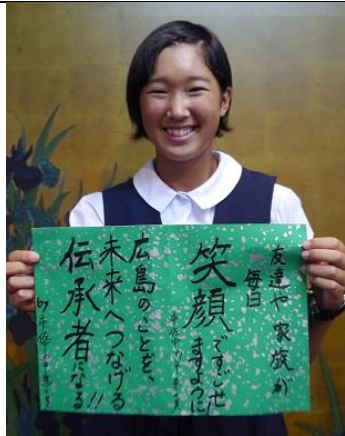 友達や家族が
毎日
笑顔ですごせ
ますように
広島のことを、
未来へつなげる
伝承者になる!!